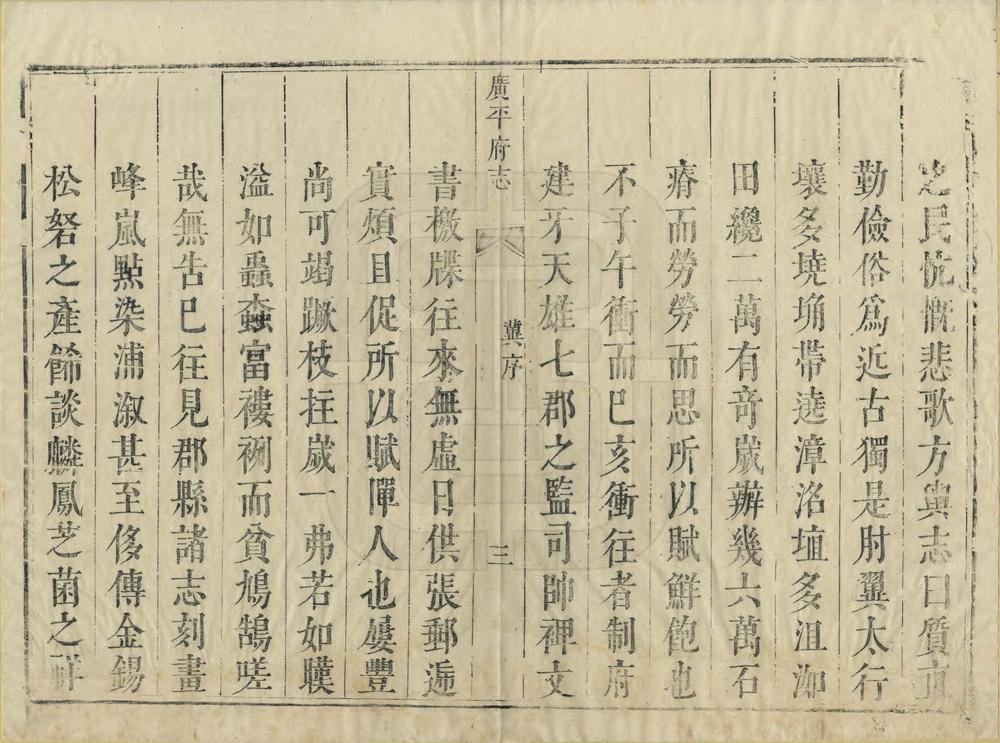 之民忼慨悲歌方輿志曰質直
勤儉俗爲近古獨是肘翼太行
壤多墝埆帶遶漳洺埴多沮洳
田纔二萬有竒歲辦幾六萬石
瘠而勞勞而思所以賦鮮飽也
不子午衝而巳亥衝往者制府
建牙天雄七郡之監司帥裨文
廣平府志
冀序
三
書檄牒往來無虛日供張郵逓
實煩且促所以賦憚人也屢豐
尚可竭蹶枝拄歲一弗若如嘆
溢如蟲螙富褸裯而貧鳩鵠嗟
哉無告已往見郡縣諸志刻畫
峰嵐點染浦溆甚至侈傳金錫
松砮之產餙談麟鳳芝菌之祥